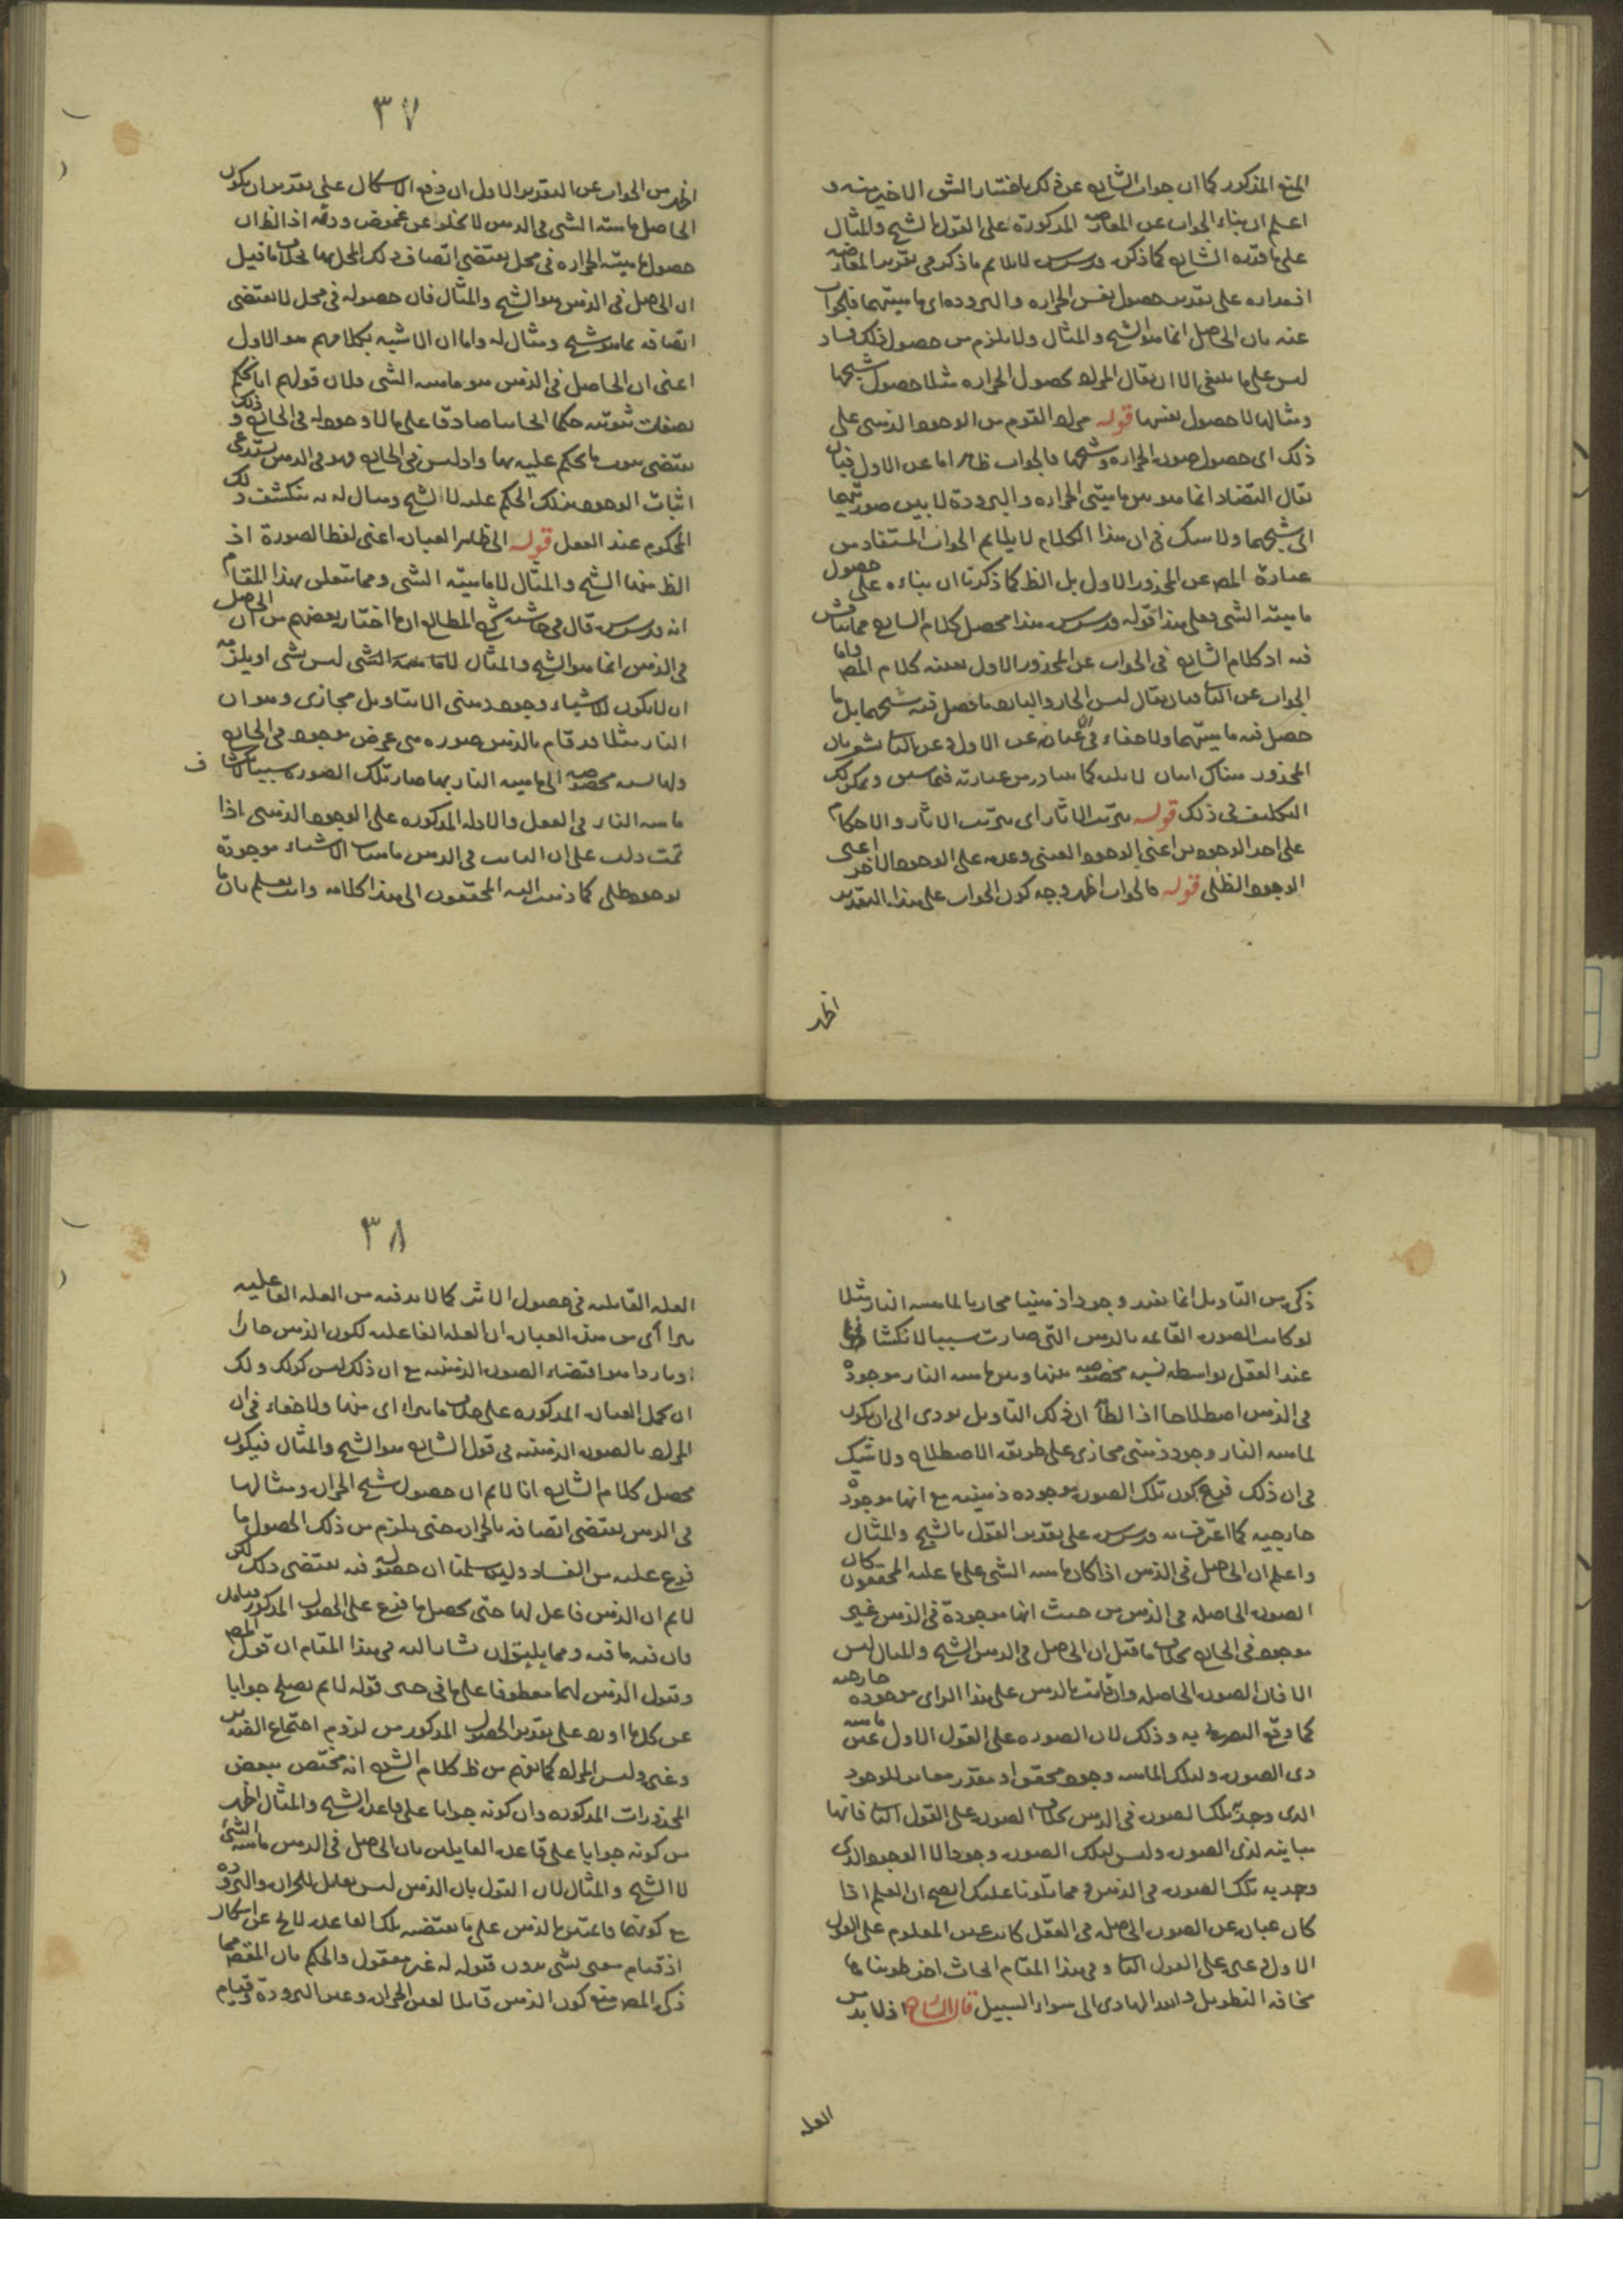 المنع المذكور كما ان جواب الشارح عن ذلك باختيار الشق الاخير منه و
اعلم ان بناء الجواب عن المعارضه المذكورة على القول بالشبح والمثال
على ما قرره الشارح كما ذكره قدس سره لا يلايم ما ذكر فى تقرير المعارضه
اذ مداره على تقدير حصول نفس الحراره والبروده اى ماهيتهما فالجواب
عنه بان الحاصل انما هو الشبح والمثال ولا يلزم من حصول ذلك فساد
ليس على ما ينبغى الا ان يقال المراد بحصول الحراره مثلا حصول شبحها
ومثالها لا حصول نفسها قوله مراد القوم من الوجود الذهنى على
ذلك اى حصول صورة الحراره وشبحها فالجواب ظاهر اما عن الاول فبان
يقال التضاد انما هو بين ماهيتى الحراره والبرودة لا بين صورتيهما
اى شبحهما ولا شك فى ان هذا الكلام لا يلايم الجواب المستفاد من
عبارة المص عن المحذور الاول بل الظ كما ذكرنا ان بناءه على حصول
ماهية الشى فعلى هذا قوله قدس سره هذا محصل كلام الشارح مما يناقش
فيه اذ كلام الشارح فى الجواب عن المحذور الاول بعينه كلام المص واما
الجواب عن الثانى فبان يقال ليس الحار والبارد ما حصل فيه شبحهما بل ما
حصل فيه ماهيتهما ولا خفاء فى ان عبارته عن الاول وعن الثانى يشعر بان
المحذور هناك اثنان لا ثلثه كما يتبادر من عبارته فيما سبق ويمكن لك
التكلف فى ذلك قوله يترتب الاثار اى يترتب الاثار والاحكام
على احد الوجودين اعنى الوجود العينى وعدمه على الوجود الاخر اعنى
الوجود الظلى قوله فالجواب اظهر وجه كون الجواب على هذا التقدير
اظهر
٣٧
اظهر من الجواب عن التقدير الاول ان دفع الاشكال على تقدير ان يكون
الحاصل ماهية الشى فى الذهن لا يخلو عن غموض ودقه اذ الظ ان
حصول ماهية الحراره فى محل يقتضى اتصاف ذلك المحل بها بخلاف ما قيل
ان الحاصل فى الذهن هو الشبح والمثال فان حصوله فى محل لا يقتضى
اتصافه بما هو شبح ومثال له واما ان الاشبه بكلامهم هو الاول
اعنى ان الحاصل فى الذهن هو ماهية الشى فلان قولهم انا نحكم
بصفات ثبوتيه حكما ايجابيا صادقا على ما لا وجود له فى الخارج وذلك
يقتضى ثبوت ما يحكم عليه بها واذ ليس فى الخارج فهو فى الذهن يستدعى
اثبات الوجود بذلك الحكم عليه لا لشبح ومثال له به ينكشف ذلك
المحكوم عند العقل قوله الى ظاهر العبارة اعنى لفظ الصورة اذ
الظ منها الشبح والمثال لا ماهية الشى ومما يتعلق بهذا المقام
انه قدس سره قال فى حاشية شرح المطالع ان ما اختاره بعضهم من ان الحاصل
فى الذهن انما هو الشبح والمثال لا ماهية الشى ليس بشى اذ يلزمه
ان لا يكون للاشياء وجود ذهنى الا بتاويل مجازى وهو ان
النار مثلا قد قام بالذهن صوره هى عرض موجود فى الخارج
ولها نسبه مخصوصه الى ماهيه النار بها صارت تلك الصورة سببا لانكشاف
ماهيه النار فى العقل والادله المذكوره على الوجود الذهنى اذا
تمت دلت على ان الثابت فى الذهن ماهيات الاشياء موجودة
بوجود ظلى كما ذهب اليه المحققون الى هذا كلامه وانت تعلم بان ما
ذكره من التاويل انما يفيد وجودا ذهنيا مجازيا لماهيه النار مثلا
لو كانت الصوره القائمه بالذهن التى صارت سببا لانكشافها
عند العقل بواسطه نسبه مخصوصه بينها وبين ماهيه النار موجودة
فى الذهن اصطلاحا اذ الظ ان ذلك التاويل يودى الى ان يكون
لماهيه النار وجود ذهنى مجازى على طريقه الاصطلاح ولا شك
فى ان ذلك فرع كون تلك الصوره موجوده ذهنيه مع انها موجوده
خارجيه كما اعترف به قدس سره على تقدير القول بالشبح والمثال
واعلم ان الحاصل فى الذهن اذا كان ماهيه الشى على ما عليه المحققون كان
الصوره الحاصله فى الذهن من حيث انها موجودة فى الذهن غير
موجود فى الخارج بخلاف ما قيل ان الحاصل فى الذهن الشبح والمثال ليس
الا فان الصوره الحاصله وان قامت بالذهن على هذا الراى موجوده خارجيه
كما وقع التصريح به وذلك لان الصوره على القول الاول عين ماهيه
ذى الصوره ولتلك الماهيه وجود محقق او مقدر مغاير للوجود
الذى وجد به تلك الصوره فى الذهن بخلاف الصوره على القول الثانى فانها
مباينه لذى الصوره وليس لتلك الصوره وجود الا الوجود الذى
وجد به تلك الصوره فى الذهن ومما تلونا عليك اتضح ان العلم اذا
كان عبارة عن الصوره الحاصله فى العقل كانت عين المعلوم على القول
الاول وغيره على القول الثانى وفى هذا المقام ابحاث اخر طويناها
مخافه التطويل والله الهادى الى سواء السبيل قال الشارح اذ لا بد من
العله
٣٨
العله القابليه فى حصول الاثر كما لا بد فيه من العله الفاعليه
يتراآى من هذه العباره ان العله الفاعليه لكون الذهن حارا
او باردا هو اقتضاء الصوره الذهنيه مع ان ذلك ليس كذلك ولك
ان تحمل العباره المذكوره على خلاف ما يتراءى منها ولا خفاء فى ان
المراد بالصوره الذهنيه فى قول الشارح هو الشبح والمثال فيكون
محصل كلام الشارح انا لا نم ان حصول شبح الحراره ومثالها
فى الذهن يقتضى اتصافه بالحراره حتى يلزم من ذلك الحصول ما
فرع عليه من الفساد ولئن سلمنا ان حصوله فيه يقتضى ذلك لكن
لا نم ان الذهن قابل لها حتى يحصل ما فرع على الحصول المذكور فتامل
فان فيه ما فيه ومما يليق ان يشار اليه فى هذا المقام ان قول المص
وقبول الذهن لهما معطوفا على ما فى حيز قوله لا نم يصلح جوابا
عن كل ما اورد على تقدير الحصول المذكور من لزوم اجتماع الضدين
وغيره وليس المراد كما توهم من ظ كلام الشرح انه مختص ببعض
المحذورات المذكوره وان كونه جوابا على قاعدة الشبح والمثال اظهر
من كونه جوابا على قاعده القايلين بان الحاصل فى الذهن ماهيه الشئ
لا الشبح والمثال لان القول بان الذهن ليس بقابل للحراره والبروده
مع كونهما قائمتين بالذهن على ما يقتضيه تلك القاعده لا يخلو عن اشكال
اذ قيام معنى بشى بدون قبوله له غير معقول والحكم بان المقصود مما
ذكره المص منع كون الذهن قابلا لعين الحراره وعين البرودة وقيام